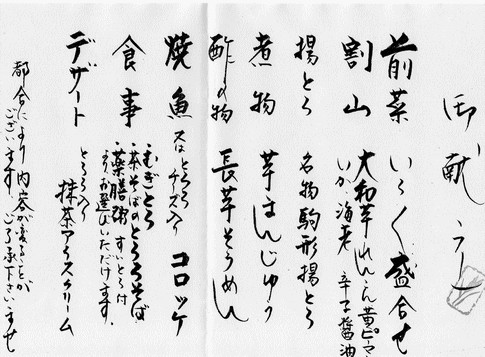 御献立
前菜 いろ〱盛合せ
割山 大和芋 れんこん 黄ピーマン
いか 海老 辛子醤油
揚とろ 名物駒形揚とろ
煮物 芋まんじゅう
酢の物 長芋そうめん
焼魚 又はとろろチーズ入りコロッケ
食事 ・むぎとろ
・茶そばのとろろそば
・薬膳粥 すいとろ付
より、お選びいただけます。
デザート とろろ入り抹茶アイスクリーム
都合により内容が変ることが
ございます。ご了承下さいませ